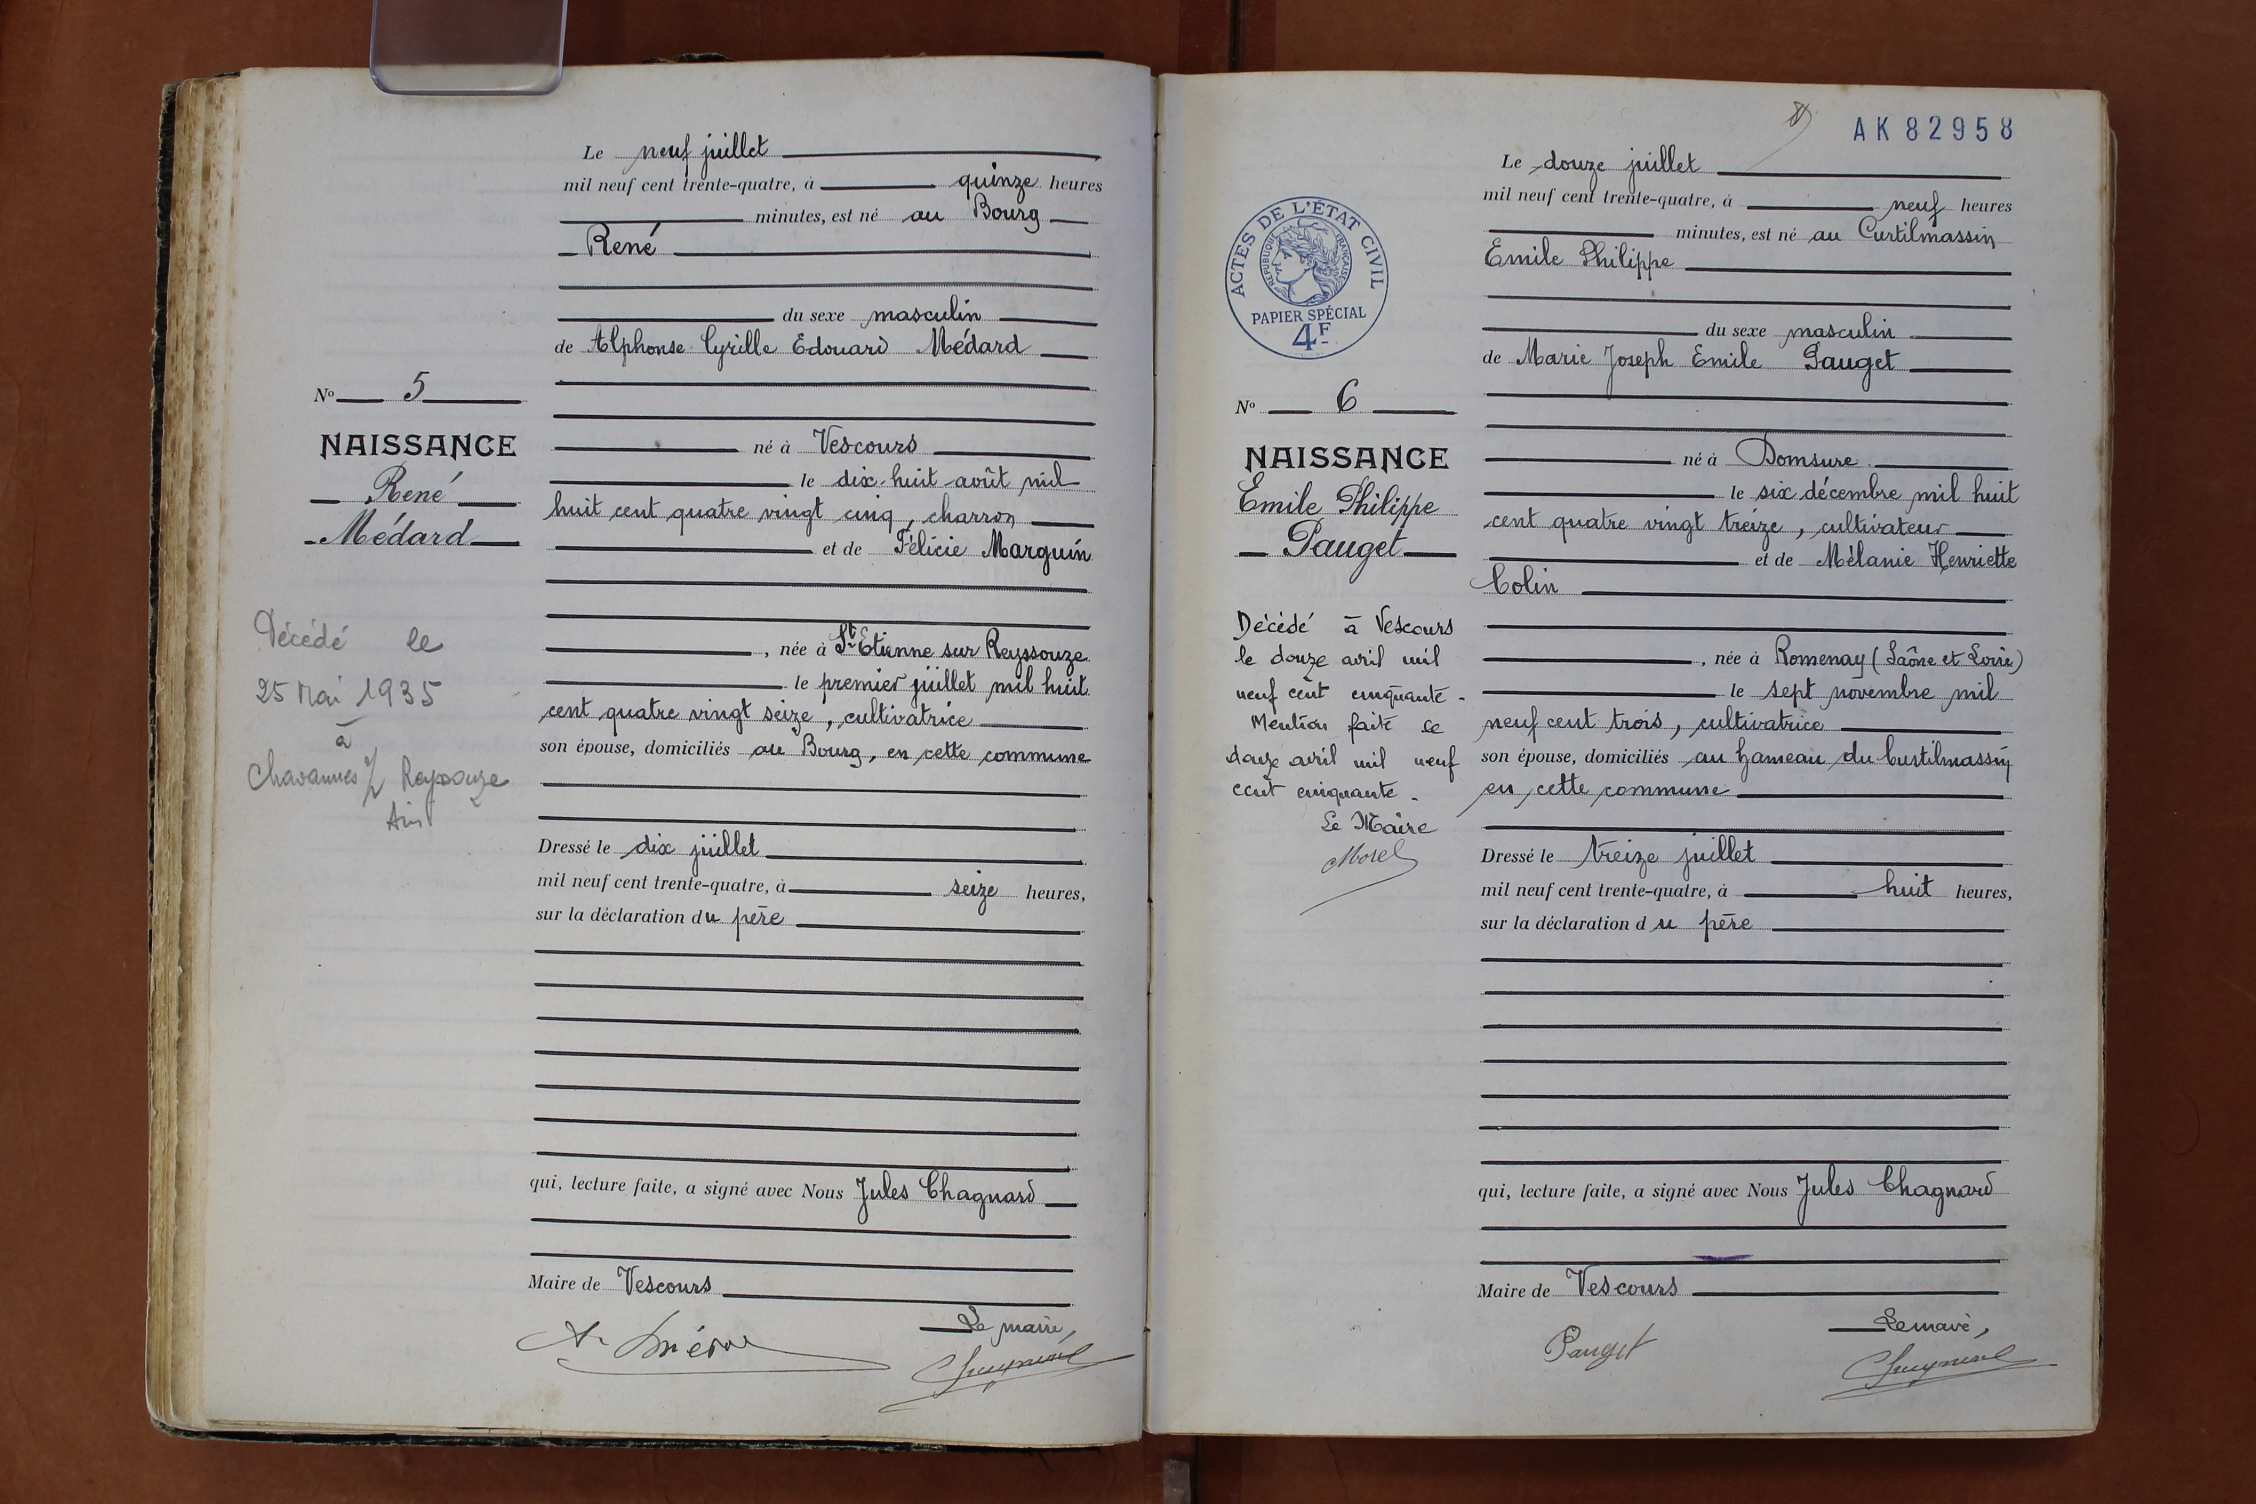 Le neuf juillet
mil neuf cent trente-quatre, à quinze heures
minutes, est né au Bourg
René
du sexe masculin
de Alphonse Cyrille Edouard Médard
né à Vescours
le dix-huit août mil
huit cent quatre vingt cinq, charron
et de Félicie Marguin
, née à St Etienne sur Reyssouze
le premier juillet mil huit
cent quatre vingt seize, cultivatrice
son épouse, domiciliés au Bourg, en cette commune
Dressé le dix juillet
mil neuf cent trente-quatre, à seize heures,
sur la déclaration du père
qui, lecture faite, a signé avec Nous Jules Chagnard
Maire de Vescours
Le maire,
No 5
NAISSANCE
René
Médard
Décédé le
25 Mai 1935
à
Chavannes s/ Reyssouze
Ain
8
AK 82958
Le douze juillet
mil neuf cent trente-quatre, à neuf heures
minutes, est né au Curtilmassin
Emile Philippe
du sexe masculin
de Marie Joseph Emile Pauget
né à Domsure
le six décembre mil huit
cent quatre vingt treize, cultivateur
et de Mélanie Henriette
Colin
, née à Romenay (Saône et Loire)
le sept novembre mil
neuf cent trois, cultivatrice
son épouse, domiciliés au hameau du Curtilmassin
en cette commune
Dressé le treize juillet
mil neuf cent trente-quatre, à huit heures,
sur la déclaration du père
qui, lecture faite, a signé avec Nous Jules Chagnard
Maire de Vescours
Le maire,
Pauget
ACTES DE L'ÉTAT CIVIL
RÉPUBLIQUE FRANÇAISE
PAPIER SPÉCIAL
4F
No 6
NAISSANCE
Emile Philippe
Pauget
Décédé à Vescours
le douze avril mil
neuf cent cinquante.
Mention faite ce
douze avril mil neuf
cent cinquante.
Le Maire
Morel